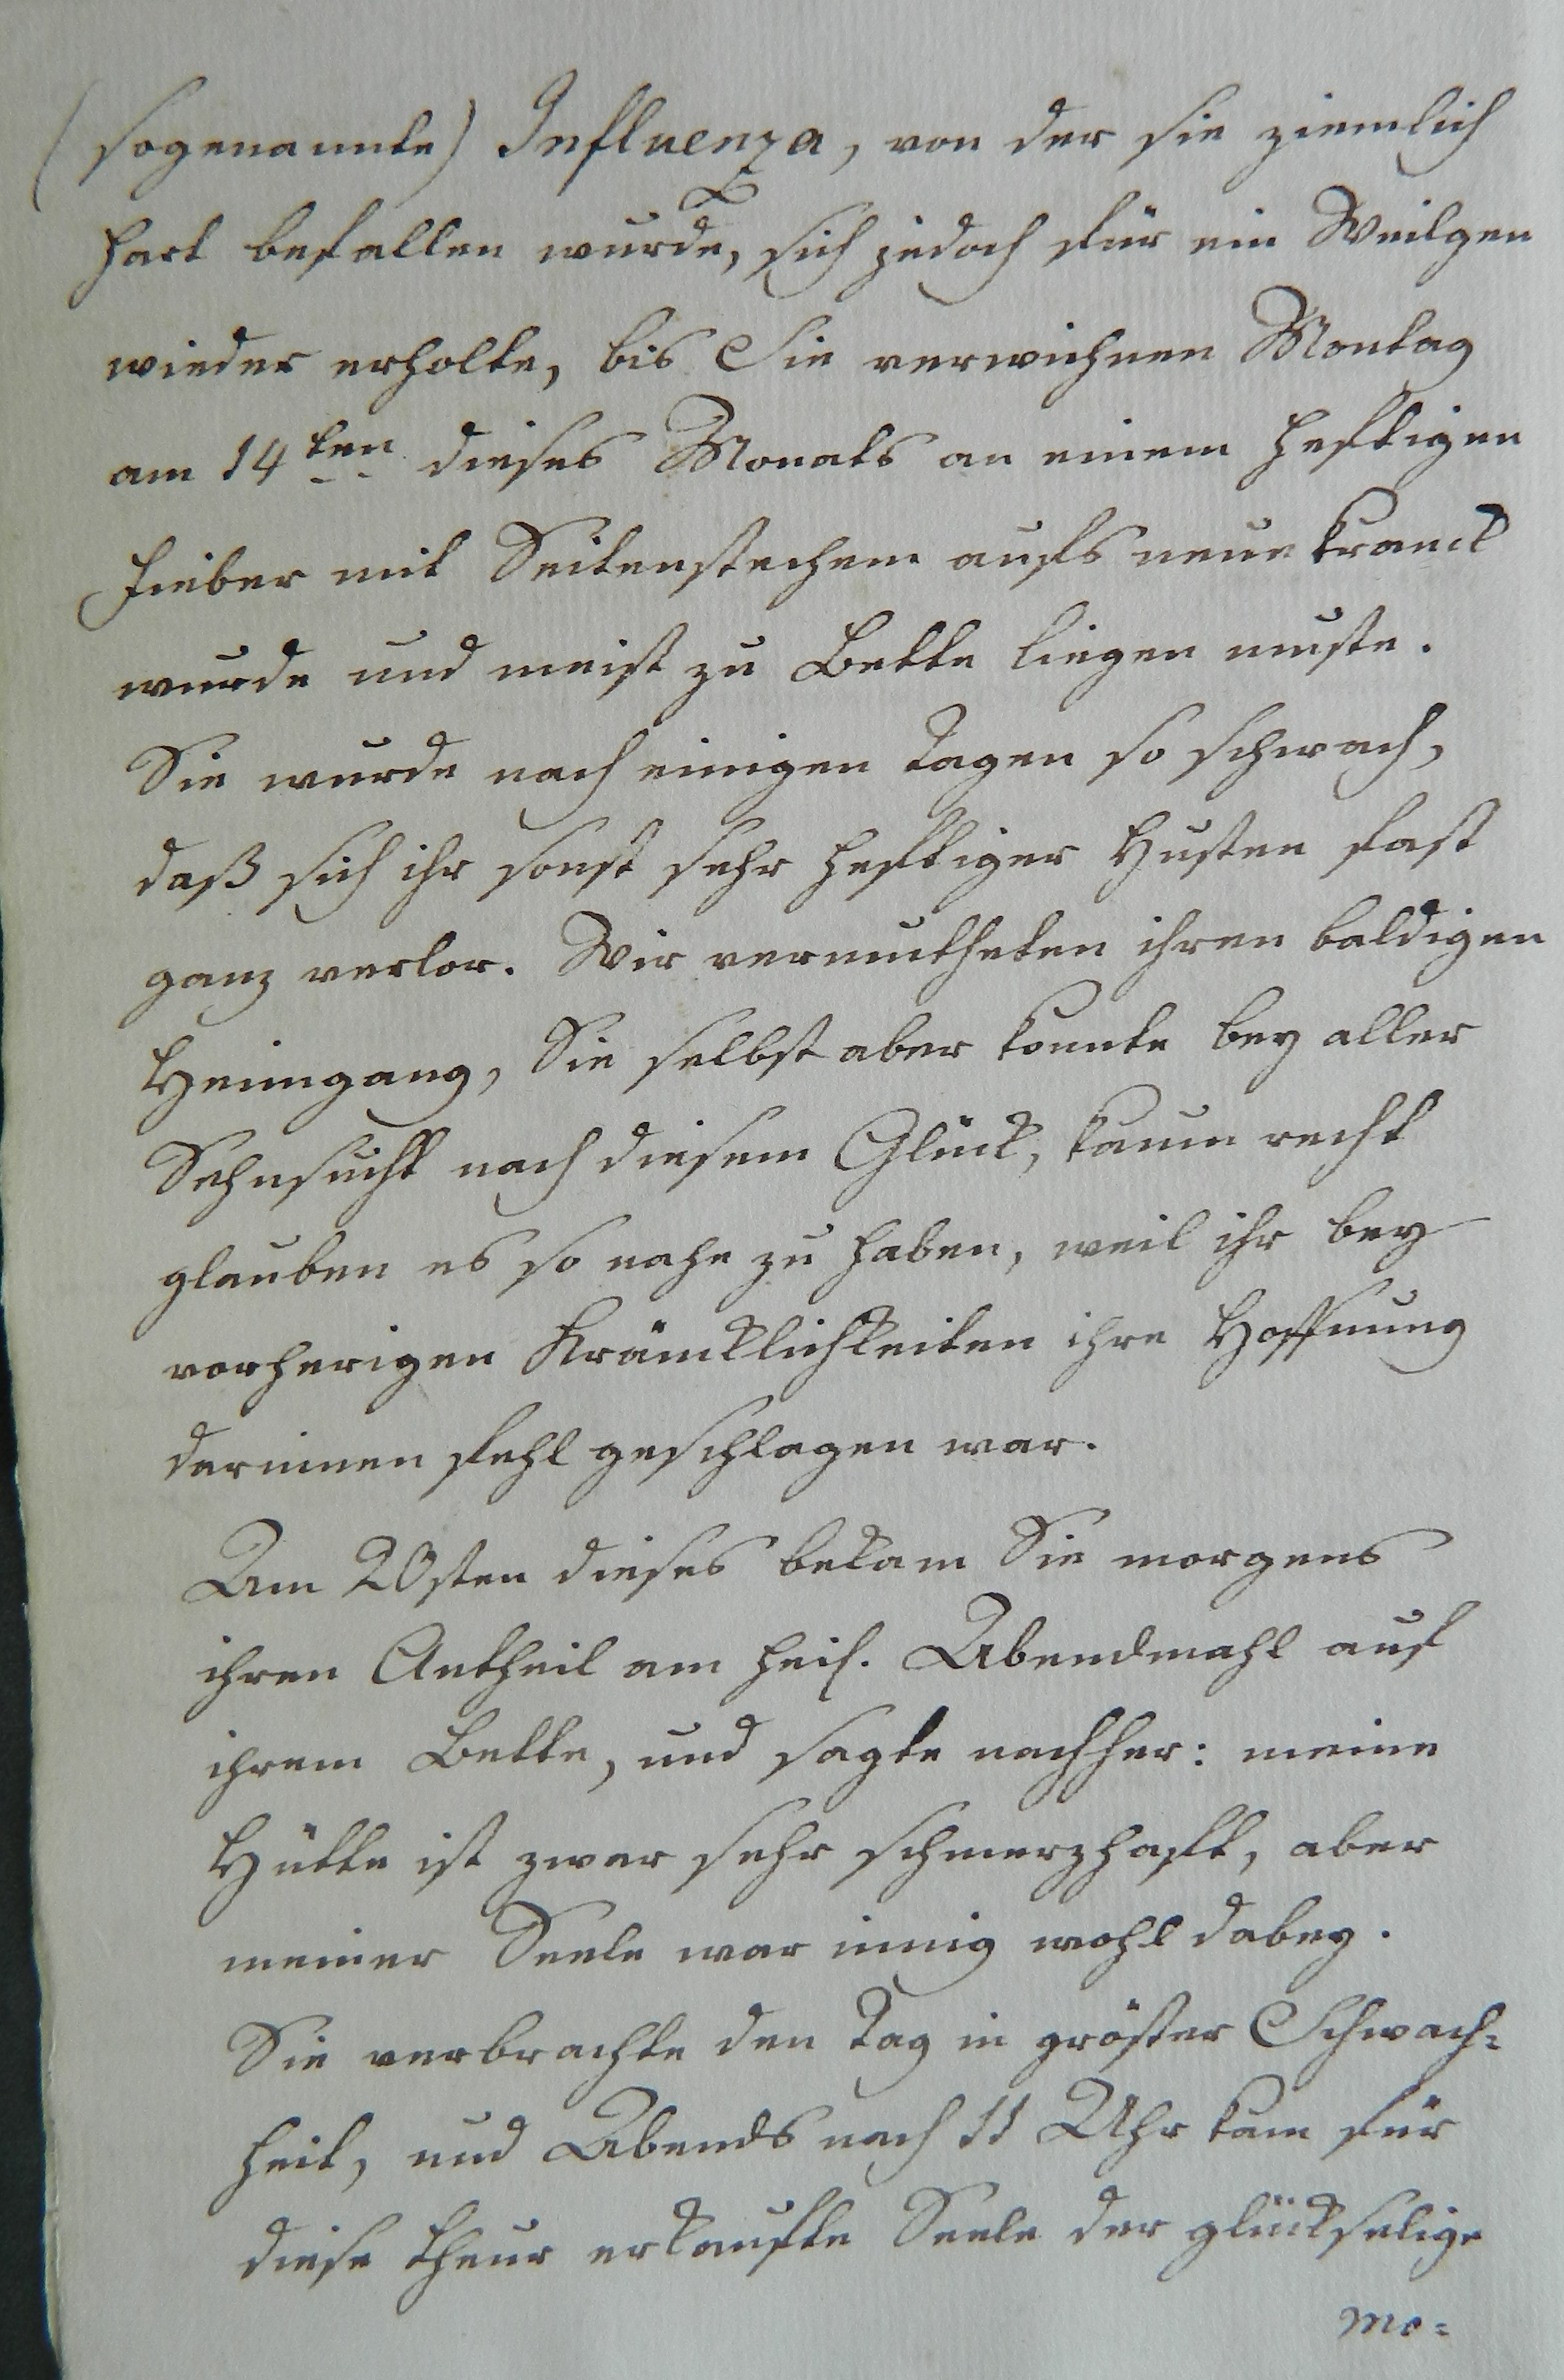 (sogenannte) Influenza, von der sie ziemlich
hart befallen wurde, sich jedoch für ein Weilgen
wieder erholte, bis Sie verwichnen Montag
am 14ten dieses Monats an einem heftigen
Fieber mit Seitenstechem aufs neue kranck
wurde und meist zu Bette liegen muste.
Sie wurde nach einigen Tagen so schwach,
daß sich ihr sonst sehr heftiger Husten fast
ganz verlor. Wir vermutheten ihren baldigen
Heimgang, Sie selbst aber konnte bey aller
Sehnsucht nach diesem Glück, kaum recht
glauben es so nahe zu haben, weil ihr bey
vorherigen Kräncklichkeiten ihre Hoffnung
darinnen fehl geschlagen war.
Am 20sten dieses bekam Sie morgens
ihren Antheil am heil. Abendmahl auf
ihrem Bette, und sagte nachher: meine
Hütte ist zwar sehr schmerzhaft, aber
meiner Seele war innig wohl dabey.
Sie verbrachte den Tag in gröster Schwach=
heit, und Abends nach 11 Uhr kam für
diese theur erkaufte Seele der glückselige
Mo=